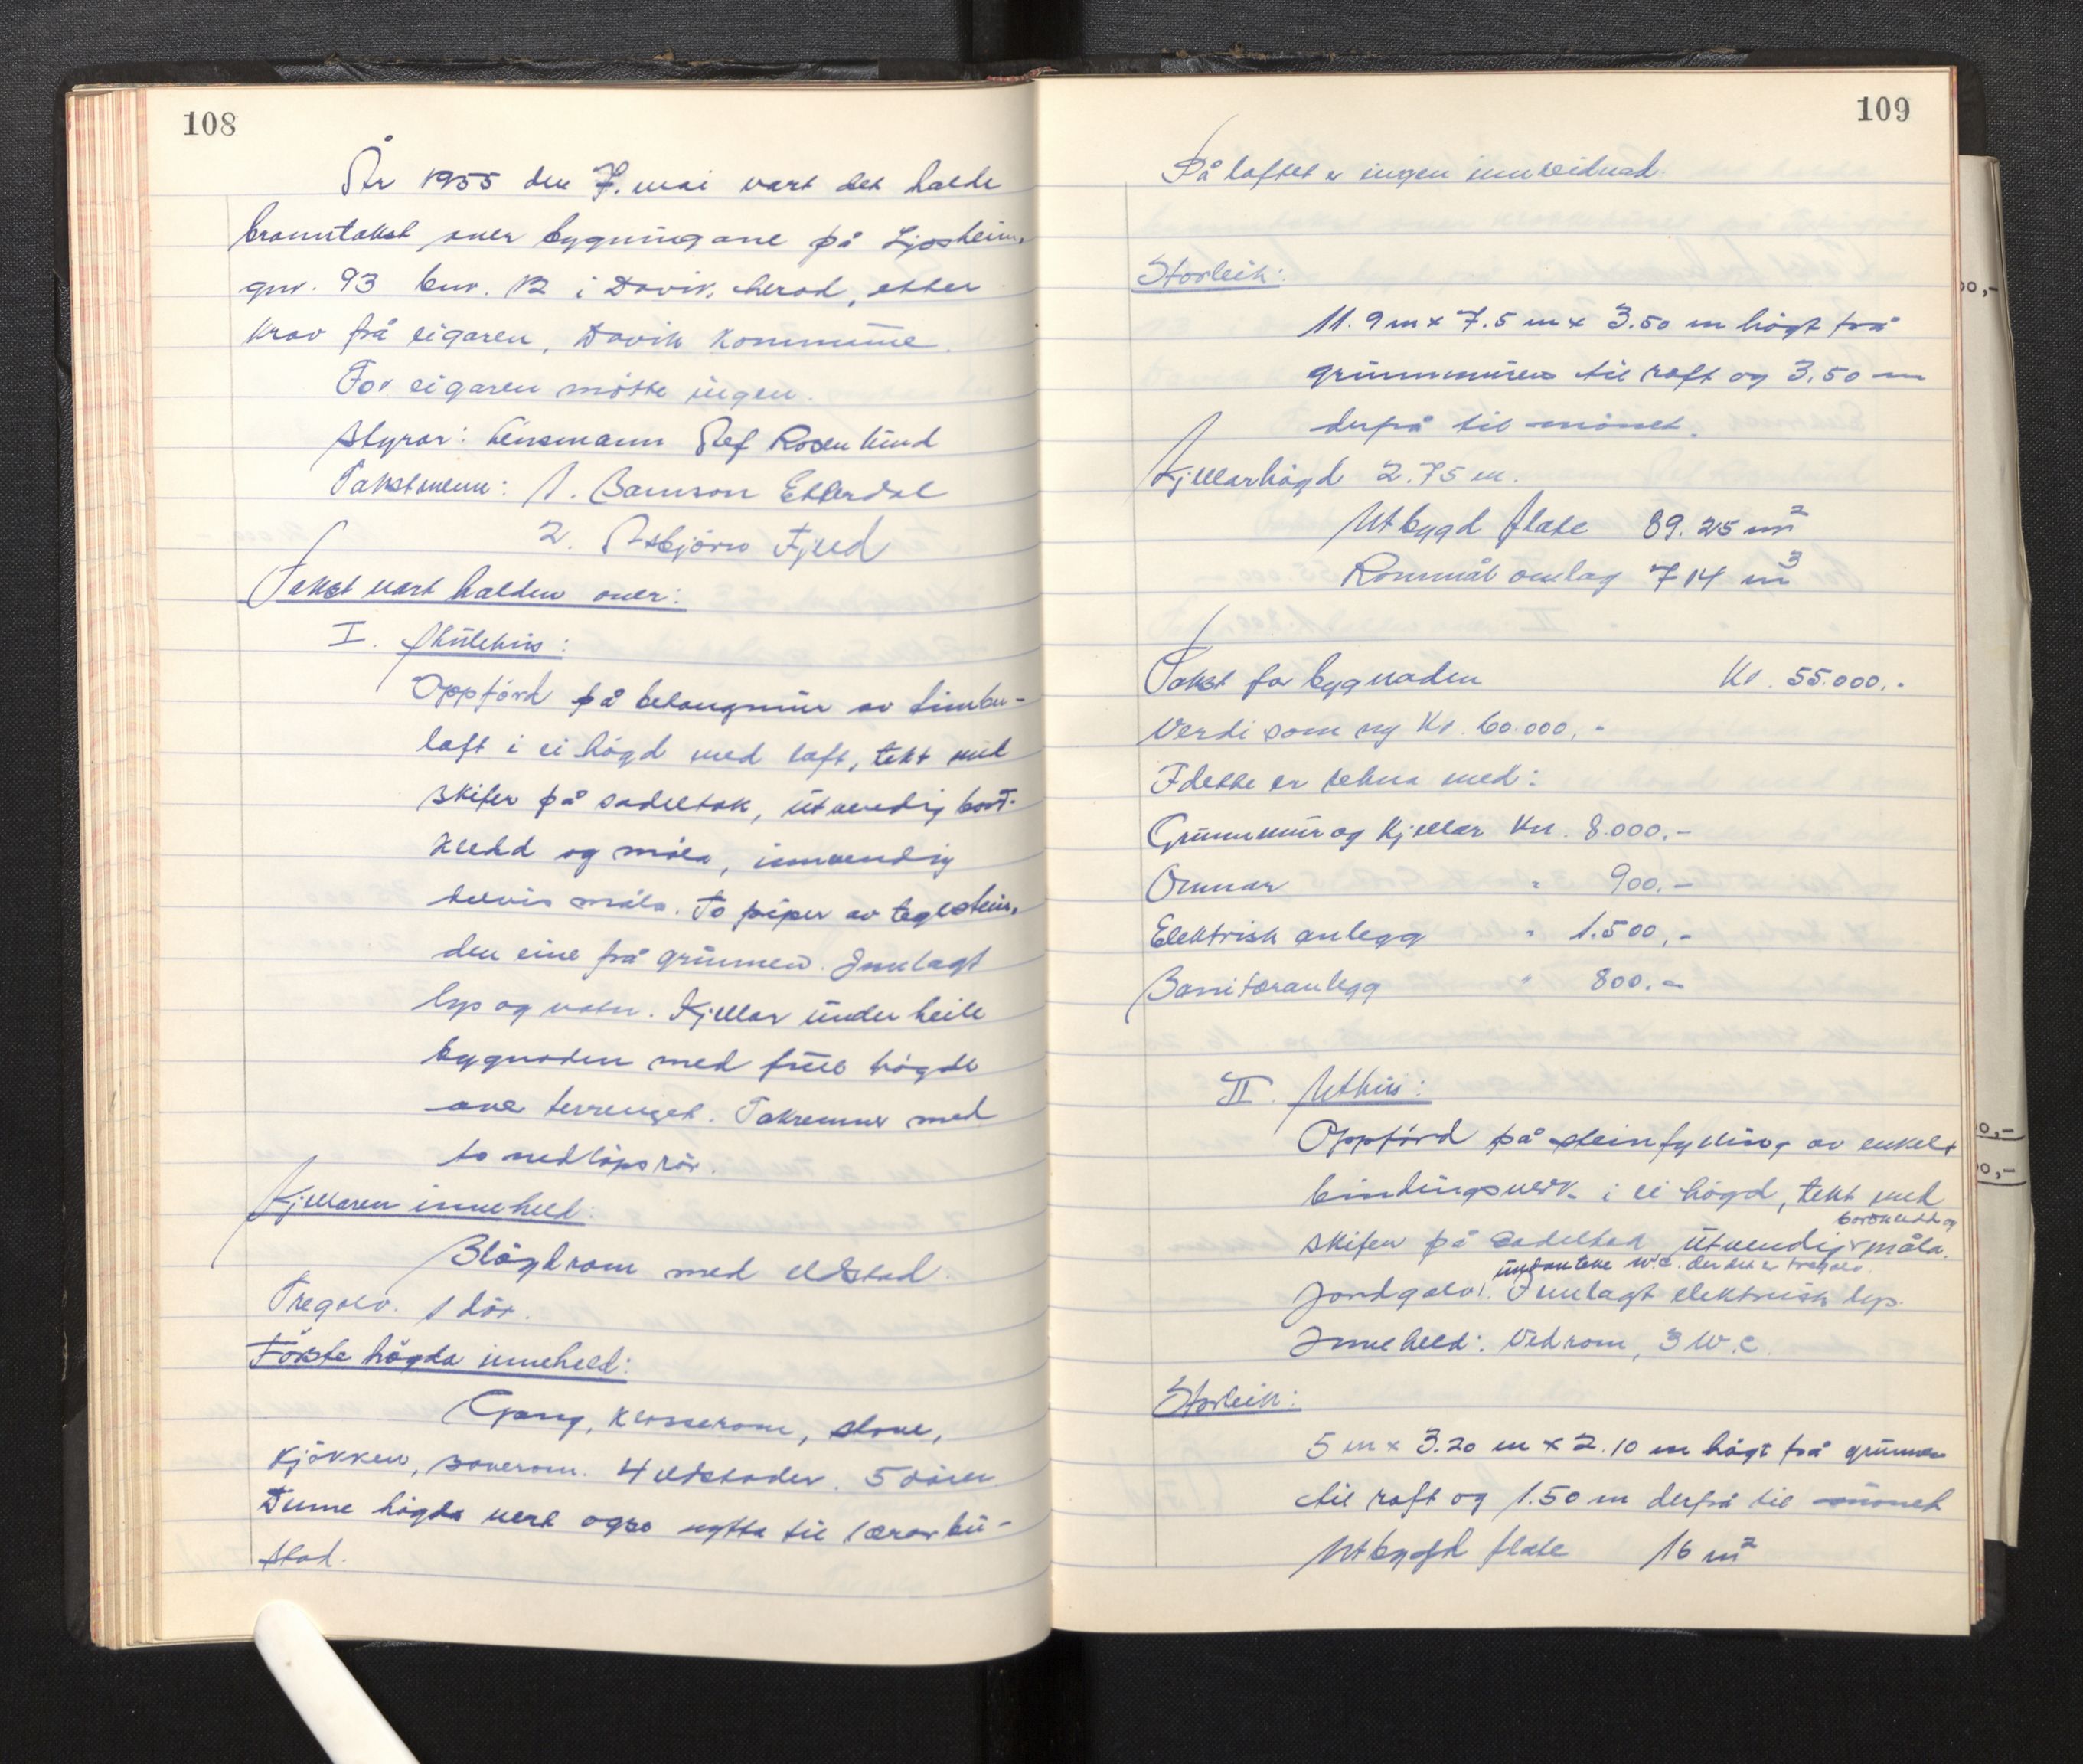 108
År 1955 den 7. mai vart det halde
branntakst over bygningane på Ljosheim,
gnr. 93 bnr. 12 i Davik herad, etter
krav frå eigaren, Davik Kommune.
For eigaren møtte ingen.
Styrar: Lensmann Alef Rosenlund
Takstmenn: 1. Samson Ellerdal
2. Asbjørn Fjed
Takst vart halden over:
I. Skulehus:
Oppførd på betongmur av timber-
laft i ei høgd med loft, tekt med
skifer på sadeltak, utvendig bord-
kledd og måla, innvendig
delvis måla. To piper av teglstein,
den eine frå grunnen. Innlagt
lys og vatn. Kjellar under heile
bygnaden med full høgde
over terrenget. Takrenner med
to nedløpsrør.
Kjellaren inneheld:
Sløydrom med eldstad.
Tregolv. 1 dør.
Første høgda inneheld:
Gang, klasserom, stove,
kjøkken, soverom. 4 eldstader. 5 dører.
Denne høgda vert også nytta til lærarbu-
stad.
109
På loftet er ingen innreidnad.
Storleik:
11.9 m x 7.5 m x 3.50 m høgt frå
grunnmuren til raft og 3.50 m
derfrå til mønet.
Kjellarhøgd 2.75 m.
Utbygd flate 89.25 m²
Rommål omlag 714 m³
Takst for bygnaden Kr. 55.000.-
Verdi som ny Kr. 60.000,-
I dette er rekna med:
Grunnmur og kjellar Kr. 8.000.-
Omnar " 900.-
Elektrisk anlegg " 1.500,-
Sanitæranlegg " 800.-
II. Uthus:
Oppførd på steinfylling av enkelt
bindingsverk i ei høgd, tekt med
bordkledd og
skifer på sadeltak utvendig måla.
undantake W.C. der det er tregolv.
Jordgolv. Innlagt elektrisk lys.
Inneheld: Vedrom, 3 W.C.
Storleik:
5 m x 3.20 m x 2.10 m høgt frå grunnen
til raft og 1.50 m derfrå til mønet
Utbygd flate 16 m²
00,-
0,-
00,-